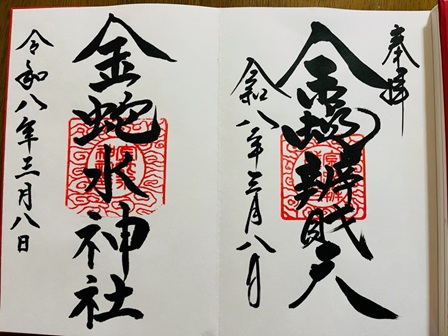 奉拝
金蛇辨財天
令和八年三月八日
金蛇水神社
令和八年三月八日